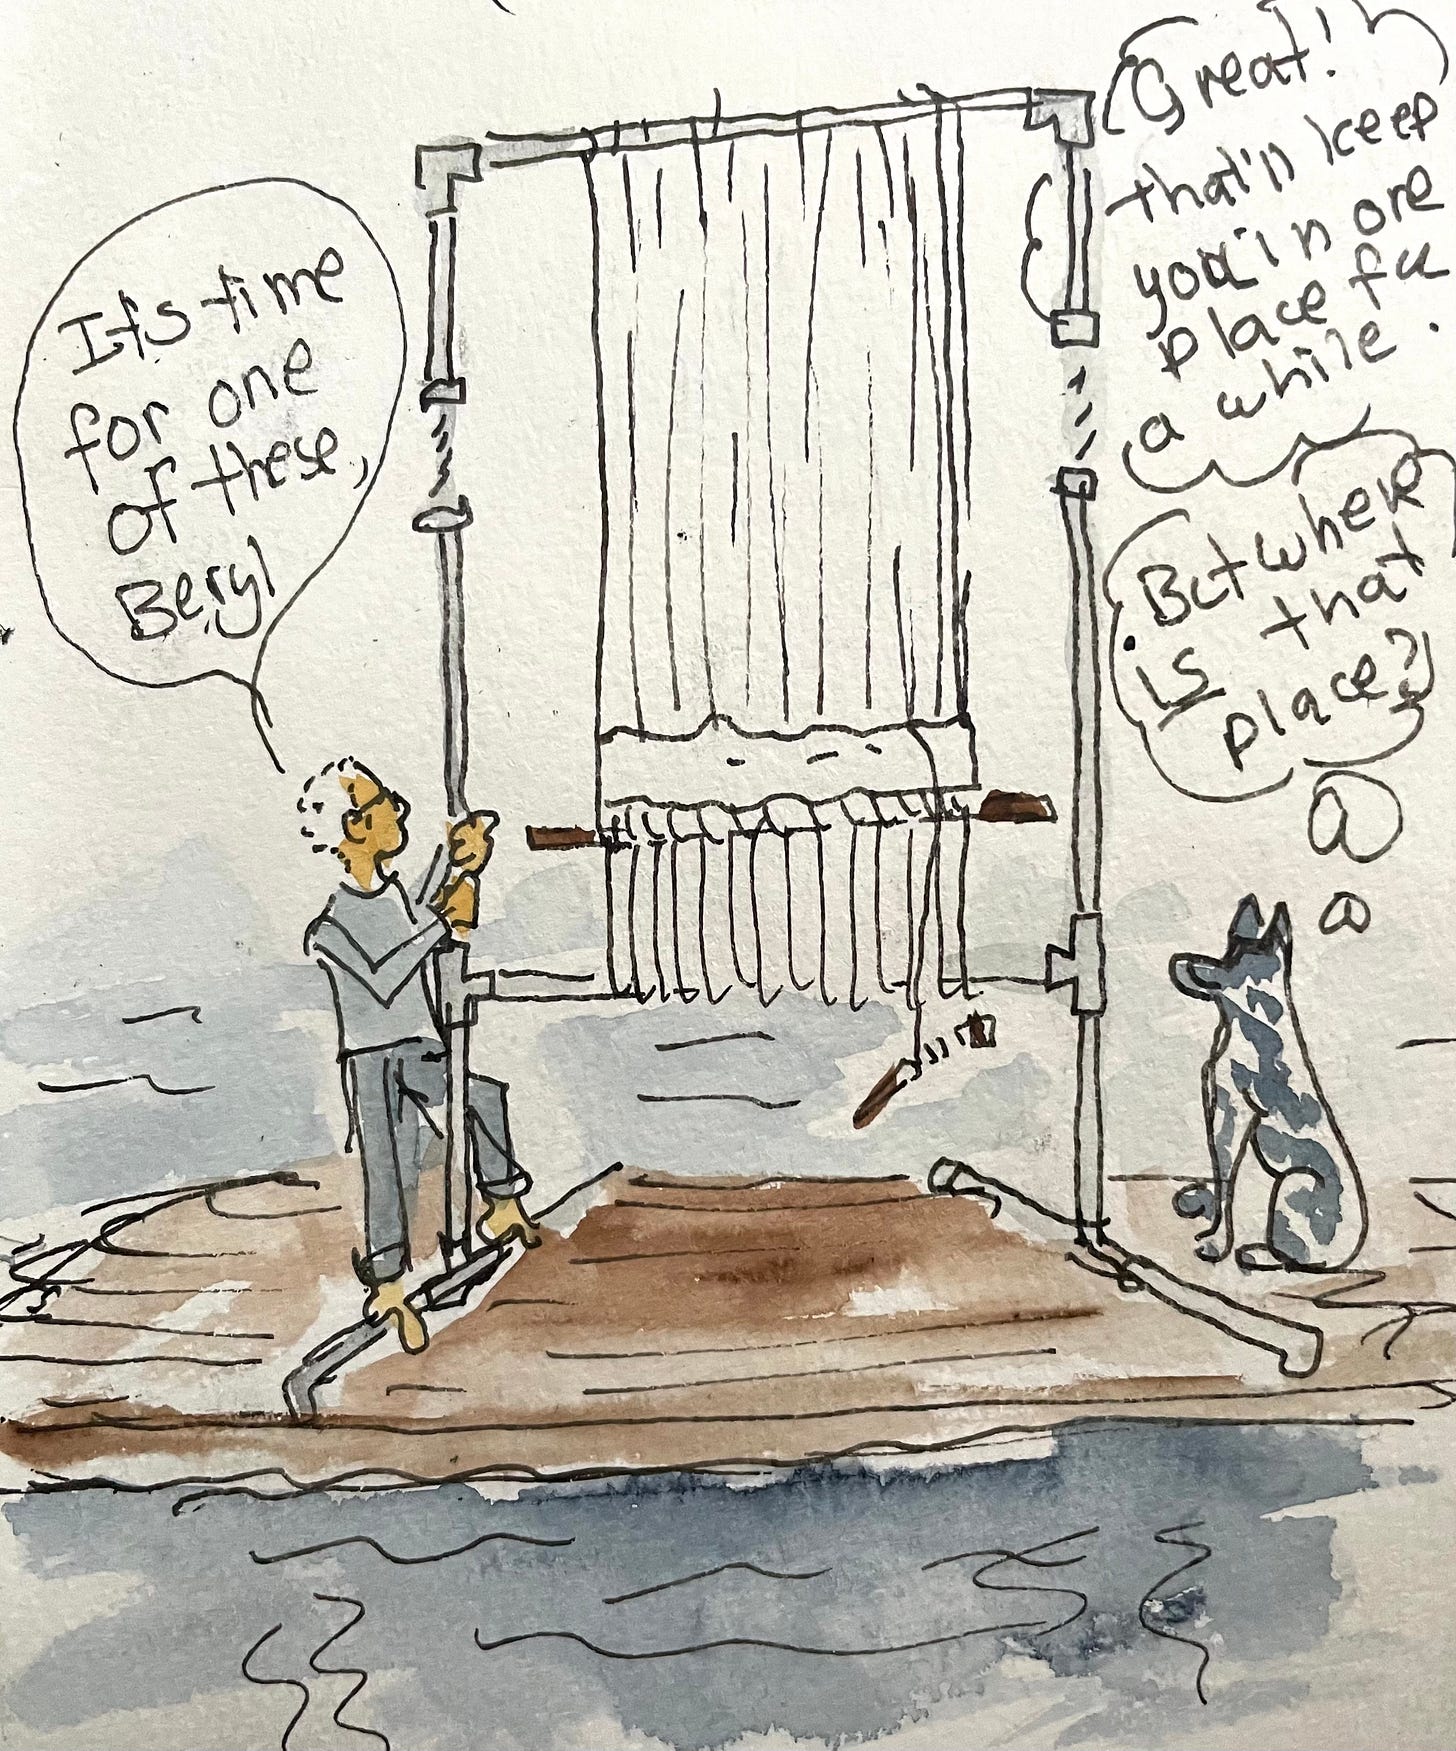 It's time
for one
of these,
Beryl
Great!
that'll keep
you in one
place fu
a while.
But where
is that
place?